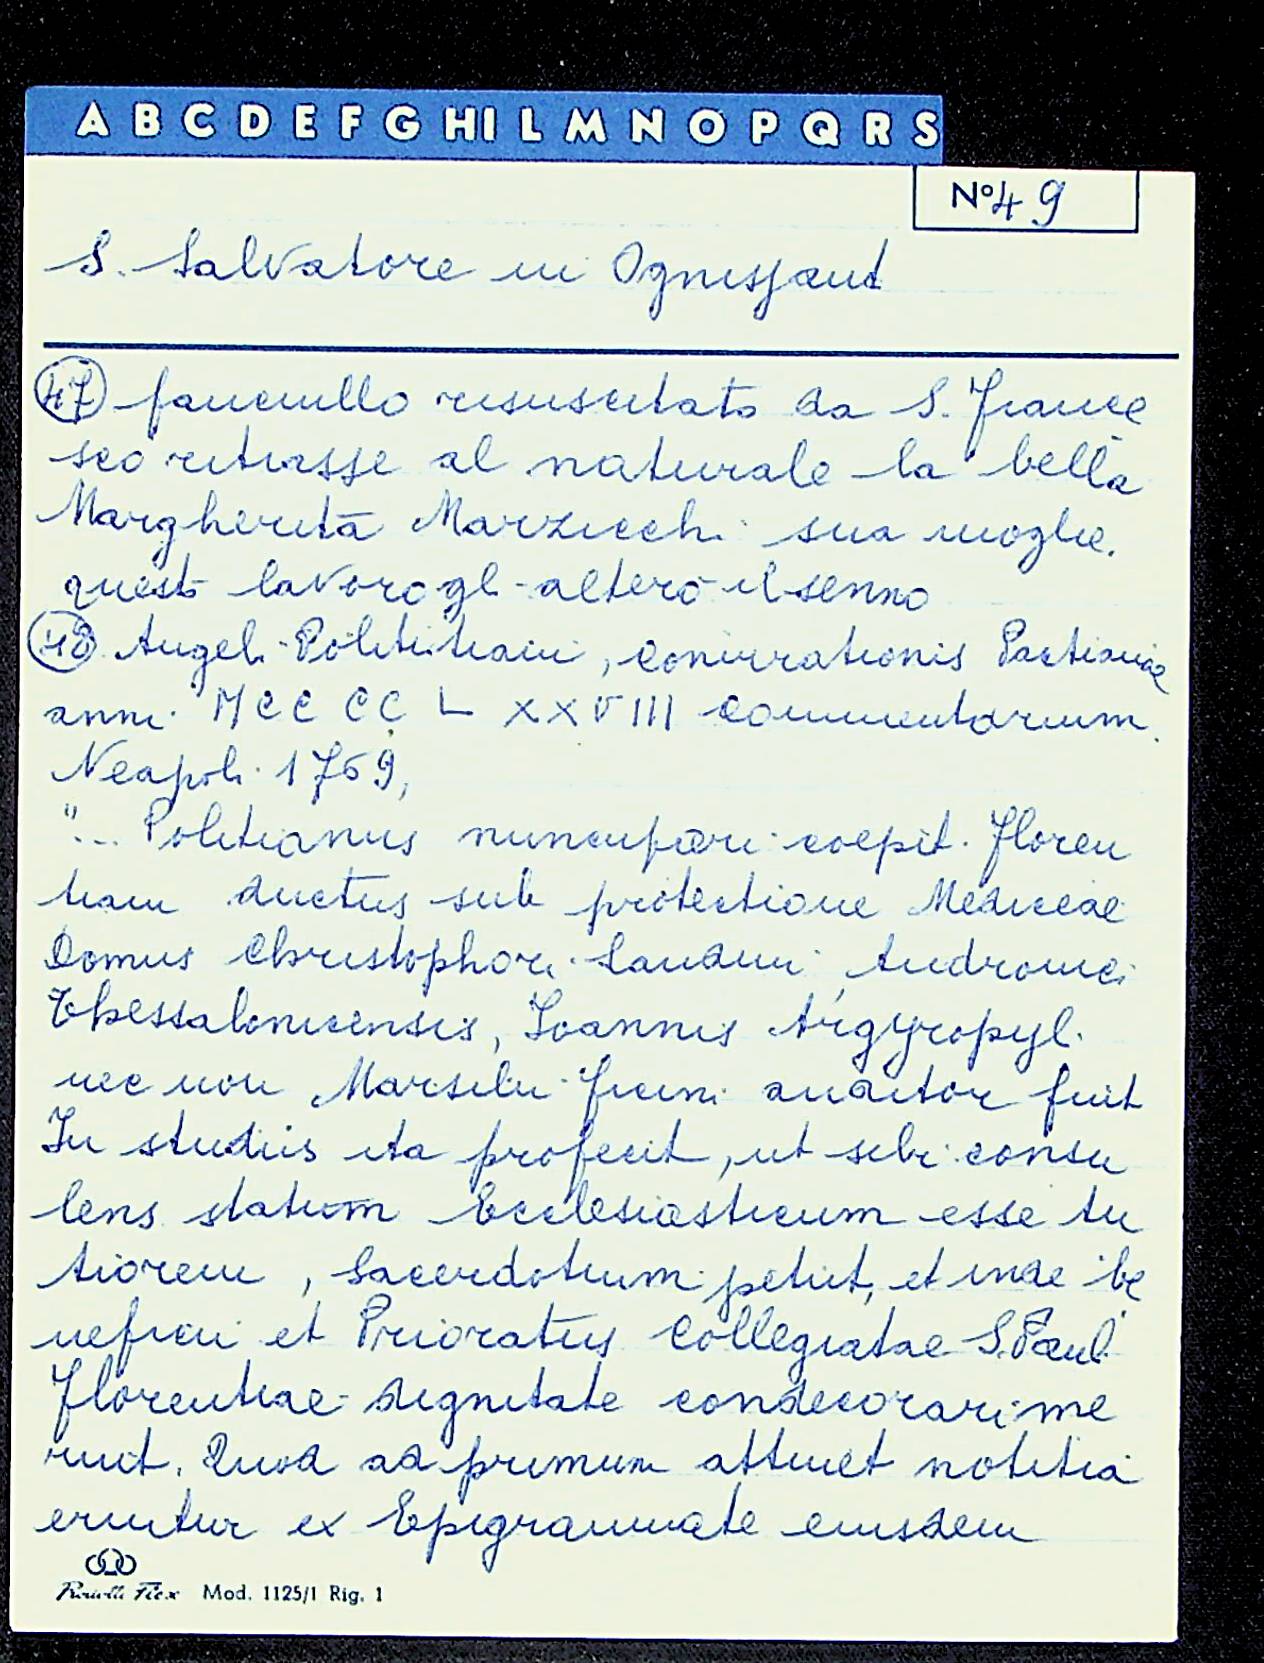 A B C D E F G H I L M N O P Q R S
N° 49
S. Salvatore in Ognissanti
47 fanciullo risuscitato da S. France
sco ritrasse al naturale la bella
Margherita Marzicchi sua moglie.
questo lavoro gli alterò il senno
48 Angeli Polititiani, coniurationis Pactianae
anni MCCCCLXXVIII commentarium.
Neapoli 1769,
"... Politianus nuncupari coepit. Floren
tiam ductus sub protectione Mediceae
Domus Christophori Landini, Andronici
Thessalonicensis, Ioannis Argyropyli
nec non Marsilii Ficini auditor fuit
In studiis ita profecit, ut sibi consu
lens statum Ecclesiasticum esse tu
tiorem, Sacerdotium petiit, et inde be
neficii et Prioratus Collegiatae S. Pauli
Florentiae dignitate condecorari me
ruit. Quod ad primum attinet notitia
eruitur ex Epigrammate eiusdem
Flex Mod. 1125/1 Rig. 1